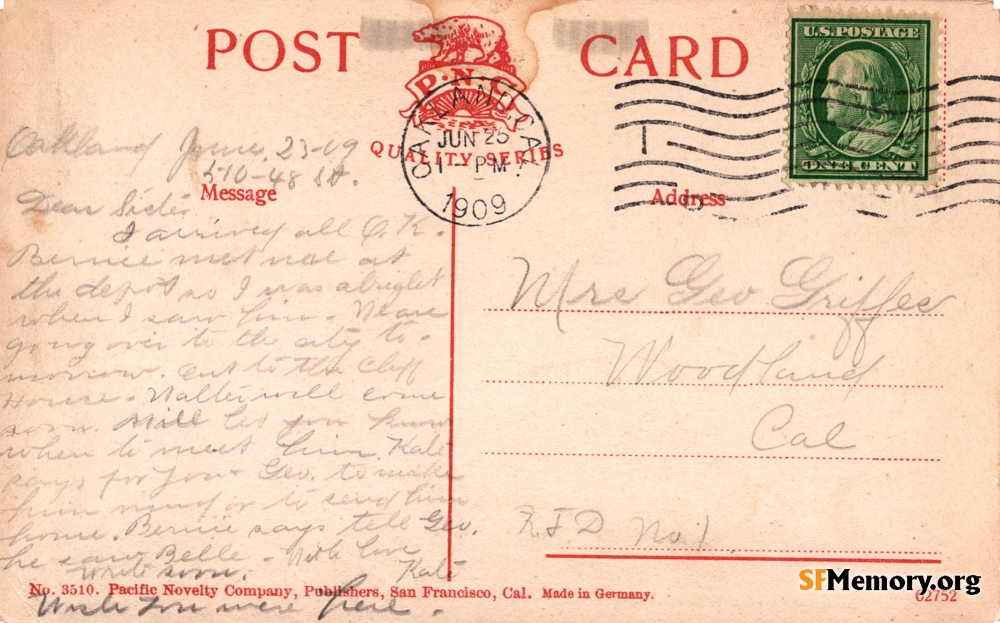 POST CARD
P.N.C.
QUALITY SERIES
OAKLAND, CAL.
JUN 25
1 PM
1909
U.S. POSTAGE
ONE CENT
Oakland June, 23-09
510-48 St.
Message
Address
Dear Sister
I arrived all O.K.
Bernie met me at
the depot so I was alright
when I saw him. We are
going over to the city to-
morrow. out to the Cliff
House. Walter will come
soon. Will let you know
when to meet him. Kate
says for you & Geo. to make
him mind or to send him
home. Bernie says tell Geo.
he saw Belle - With love
write soon. Kate
Wish you were here.
Mrs Geo Griffes
Woodland
Cal
R.F.D No 1.
No. 3510. Pacific Novelty Company, Publishers, San Francisco, Cal. Made in Germany.
G2752
SFMemory.org